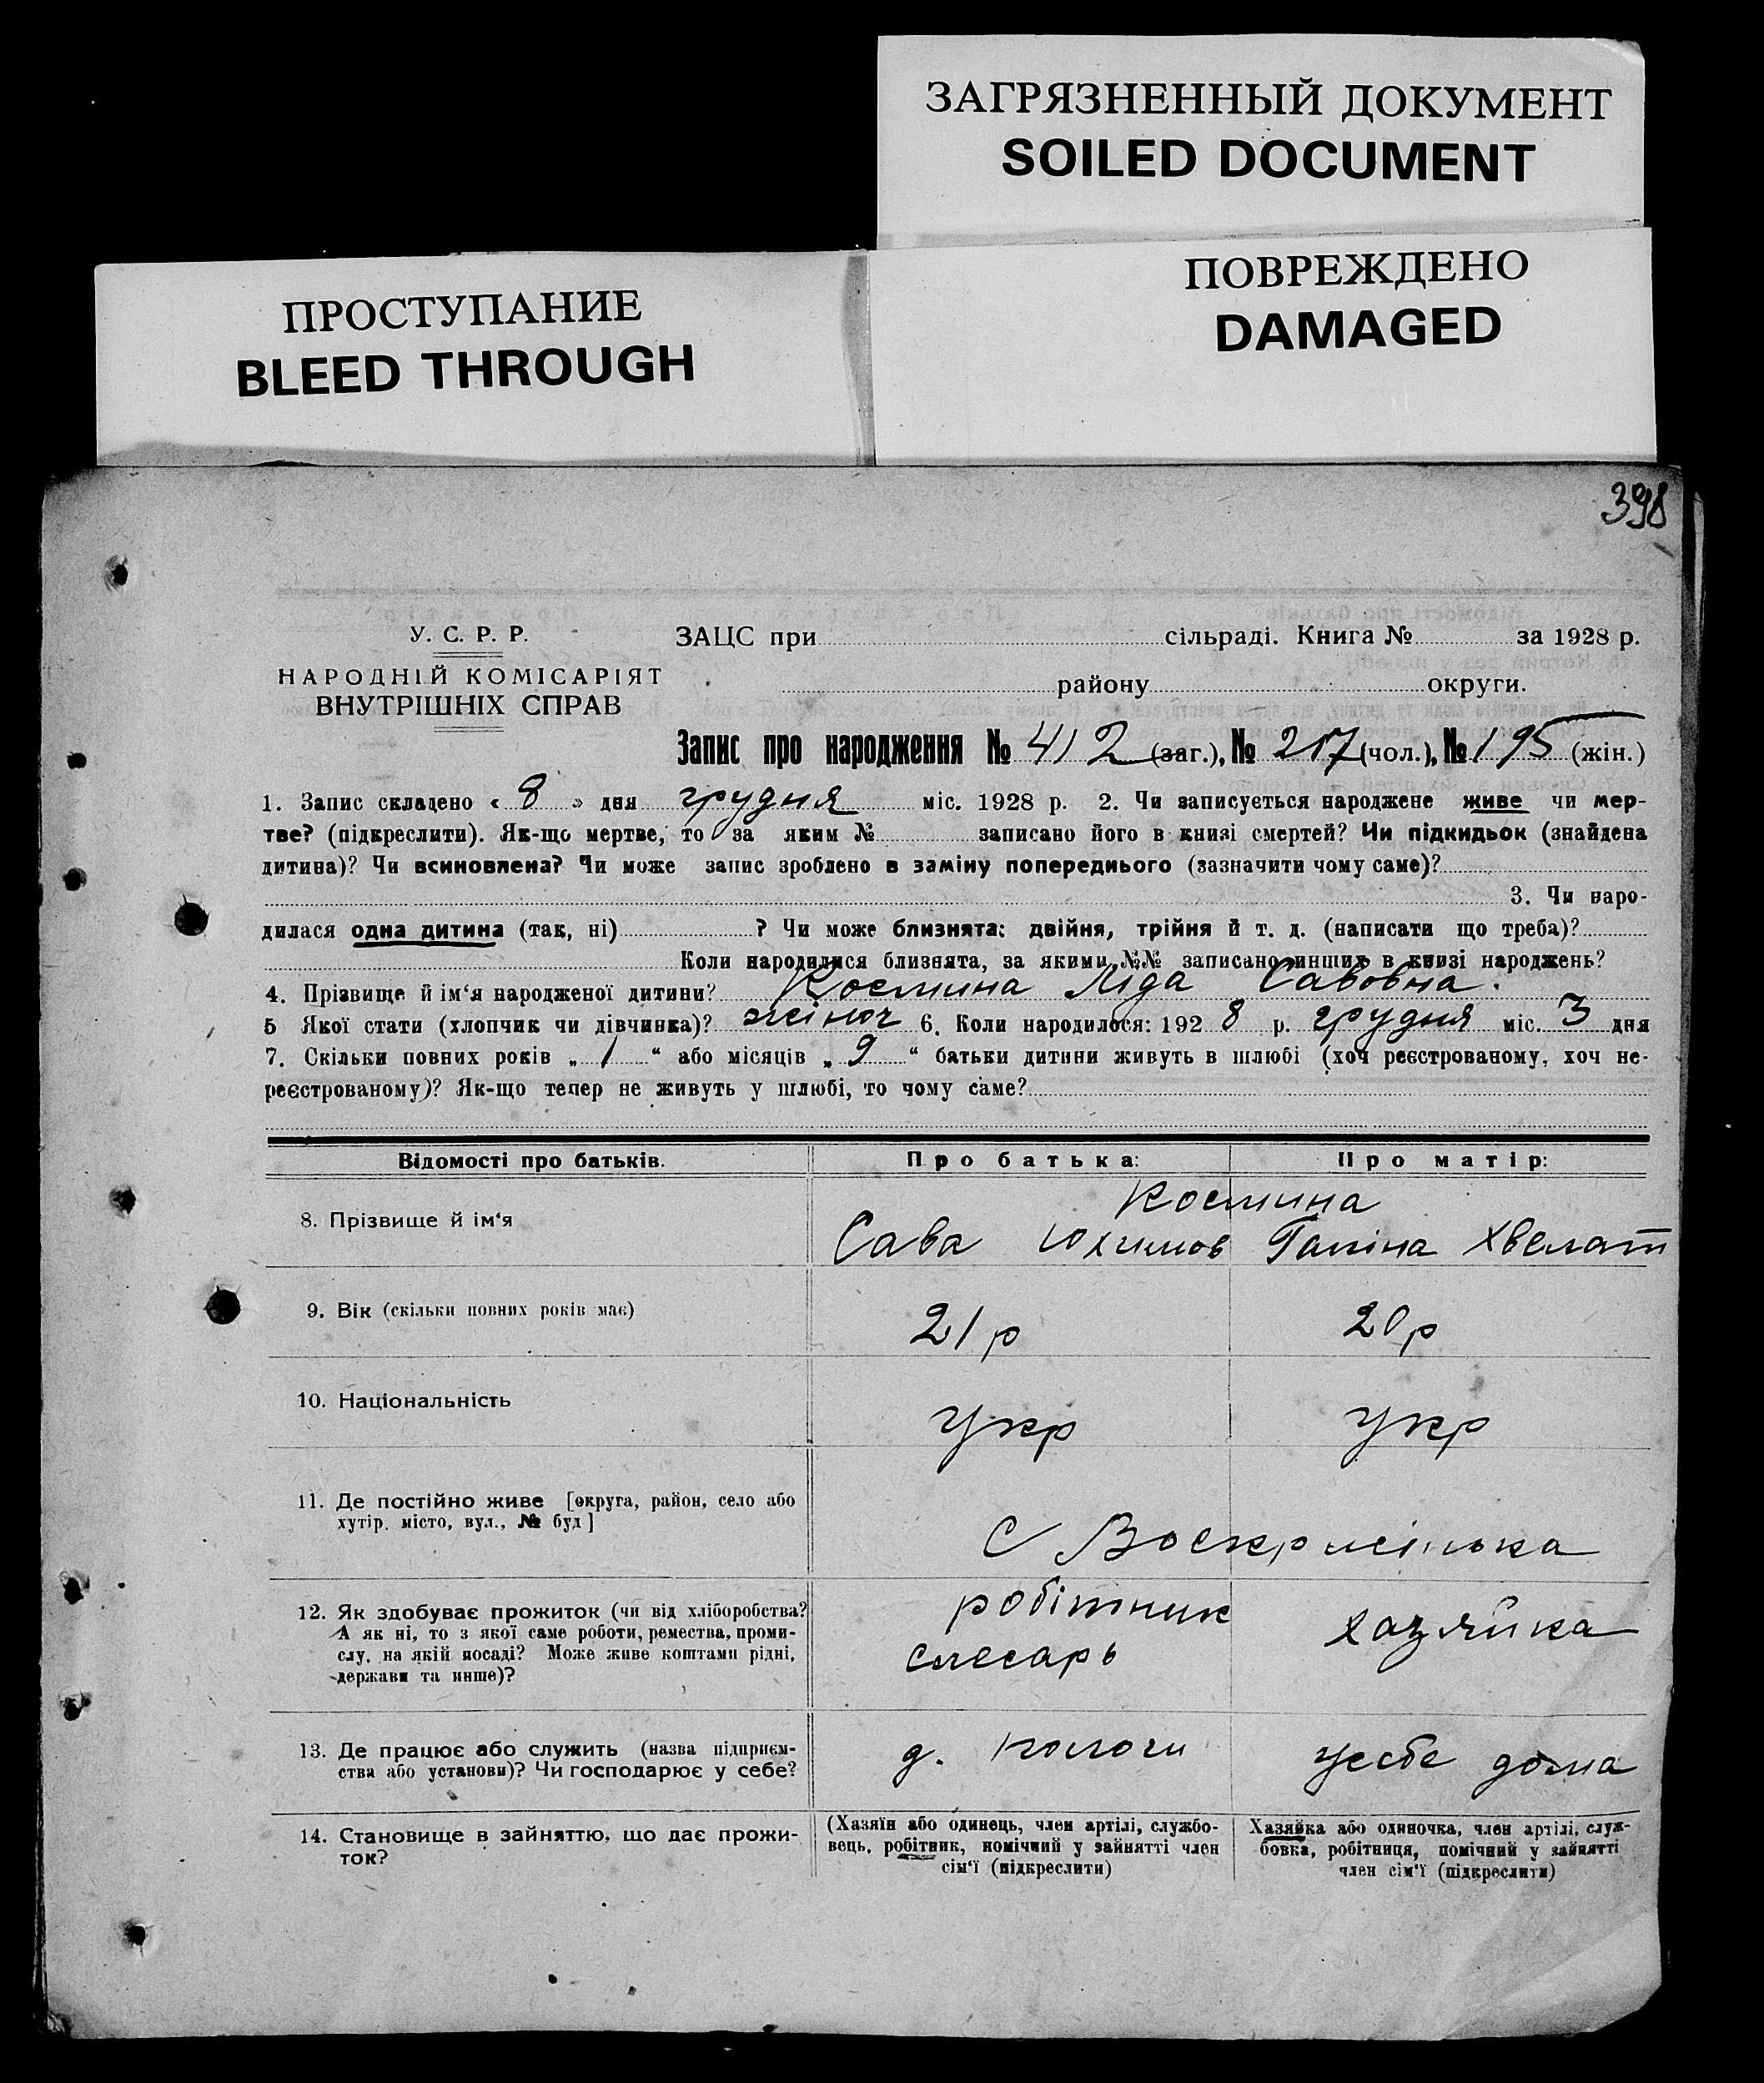 ЗАГРЯЗНЕННЫЙ ДОКУМЕНТ
SOILED DOCUMENT
ПОВРЕЖДЕНО
DAMAGED
ПРОСТУПАНИЕ
BLEED THROUGH
398
У. С. Р. Р.
НАРОДНІЙ КОМІСАРІЯТ
ВНУТРІШНІХ СПРАВ
ЗАЦС при сільраді. Книга № за 1928 р.
району округи.
Запис про народження № 412 (заг.), № 217 (чол.), № 195 (жін.)
1. Запис складено « 8 » дня грудня міс. 1928 р. 2. Чи записується народжене живе чи мер-
тве? (підкреслити). Як-що мертве, то за яким № записано його в книзі смертей? Чи підкидьок (знайдена
дитина)? Чи всиновлена? Чи може запис зроблено в заміну попереднього (зазначити чому саме)?
3. Чи наро-
дилася одна дитина (так, ні) ? Чи може близнята: двійня, трійня й т. д. (написати що треба)?
Коли народилися близнята, за якими №№ записано инших в книзі народжень?
4. Прізвище й ім‘я народженої дитини? Космина Ліда Савовна.
5 Якої стати (хлопчик чи дівчинка)? жіноч 6. Коли народилося: 192 8 р. грудня міс. 3 дня
7. Скільки повних років „ 1 “ або місяців „ 9 “ батьки дитини живуть в шлюбі (хоч реєстрованому, хоч не-
реєстрованому)? Як-що тепер не живуть у шлюбі, то чому саме?
Відомості про батьків.
Про батька:
Про матір:
8. Прізвище й ім‘я
Космина
Сава Юхимов
Галіна Хвелат
9. Вік (скільки повних років має)
21 р
20 р
10. Національність
Укр
Укр
11. Де постійно живе [округа, район, село або
хутір, місто, вул., № буд]
С
12. Як здобуває прожиток (чи від хліборобства?
А як ні, то з якої саме роботи, ремества, проми-
слу, на якій посаді? Може живе коштами рідні,
держави та инше)?
робітник
слесарь
хазяйка
13. Де працює або служить (назва підприєм-
ства або установи)? Чи господарює у себе?
д.
усебе дома
14. Становище в зайняттю, що дає прожи-
ток?
(Хазяїн або одинець, член артілі, службо-
вець, робітник, помічний у зайнятті член
сім‘ї (підкреслити)
Хазяйка або одиночка, член артілі, служ-
бовка, робітниця, помічний у зайнятті
член сім‘ї (підкреслити)